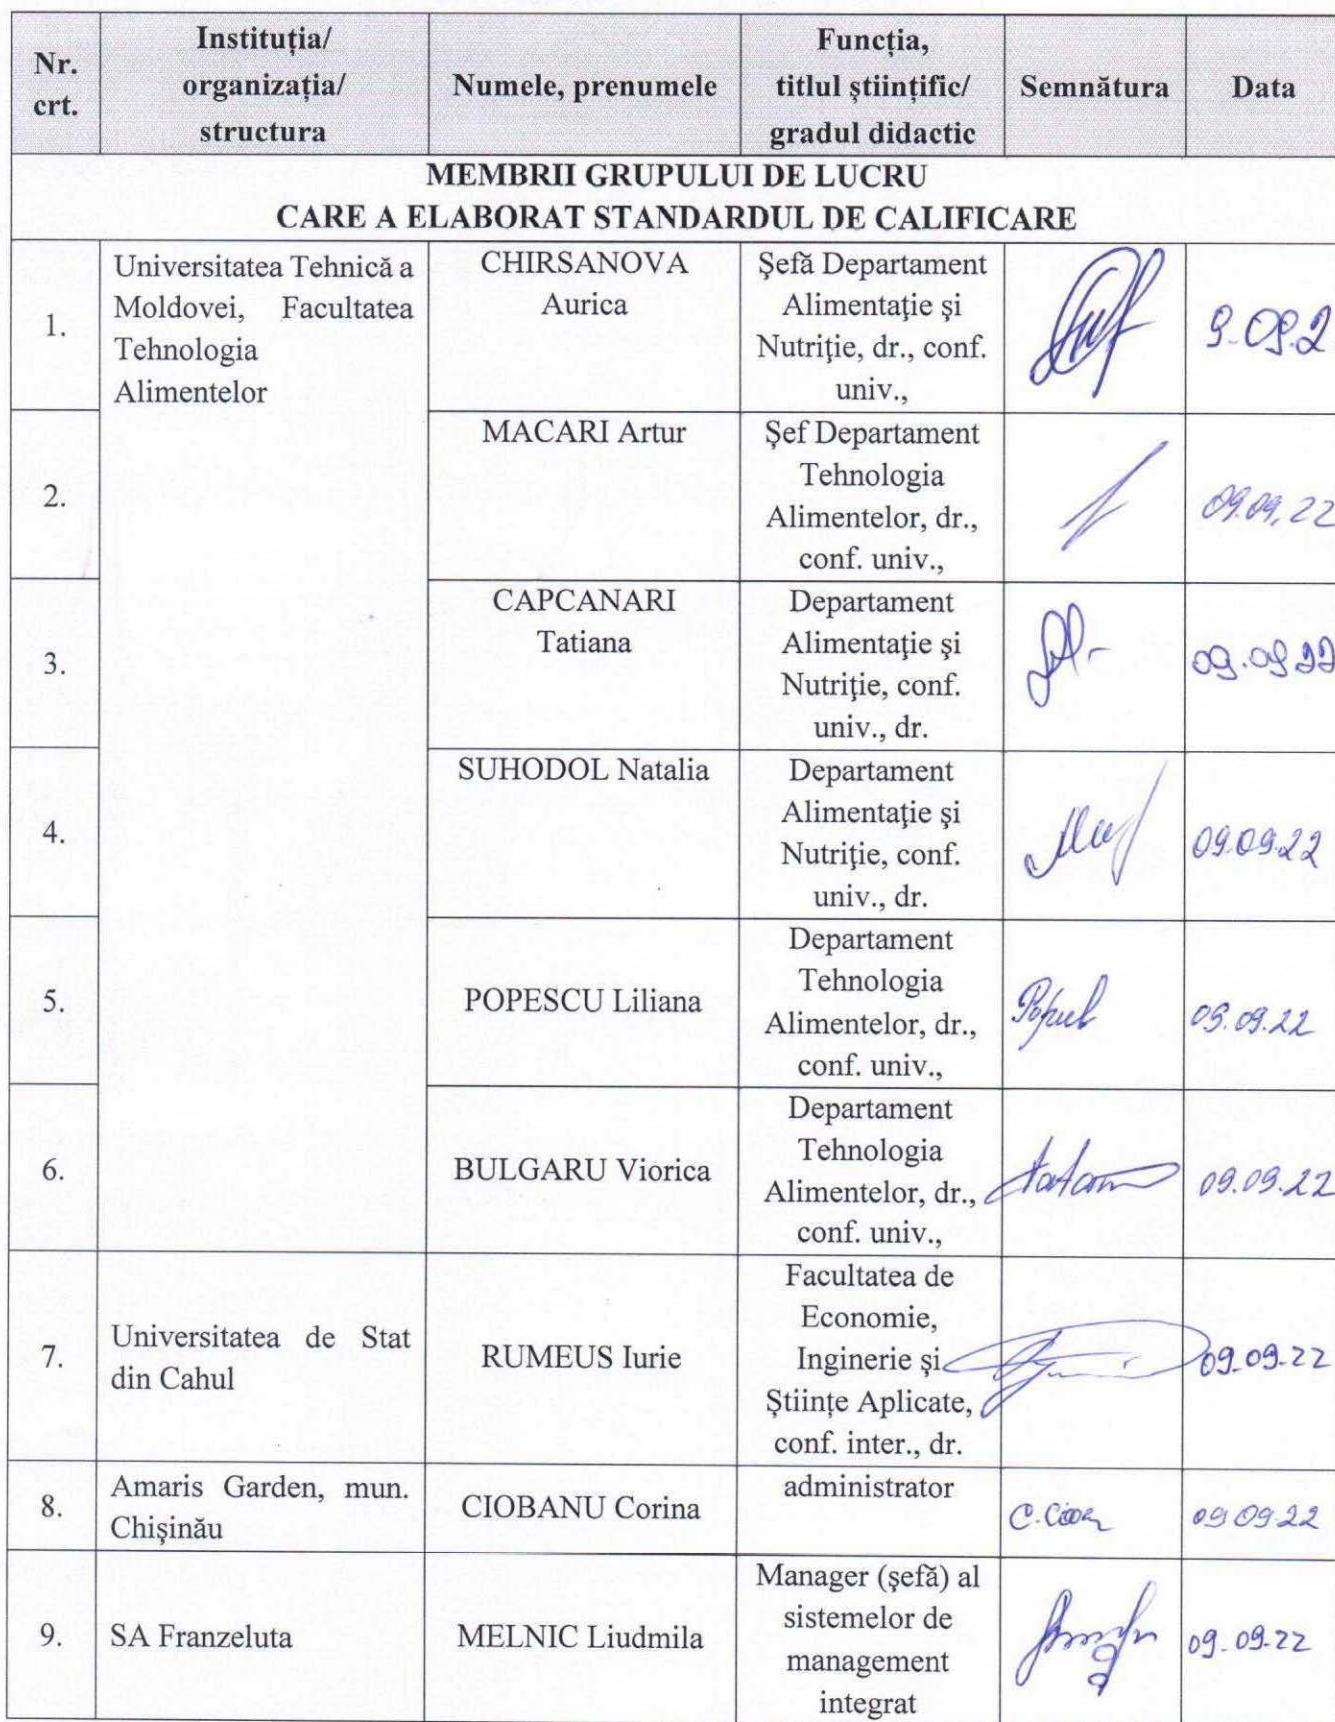 Nr.
crt.
Instituția/
organizația/
structura
Numele, prenumele
Funcția,
titlul științific/
gradul didactic
Semnătura
Data
MEMBRII GRUPULUI DE LUCRU
CARE A ELABORAT STANDARDUL DE CALIFICARE
1.
Universitatea Tehnică a
Moldovei, Facultatea
Tehnologia
Alimentelor
CHIRSANOVA
Aurica
Şefă Departament
Alimentaţie şi
Nutriţie, dr., conf.
univ.,
9.09.2
2.
MACARI Artur
Şef Departament
Tehnologia
Alimentelor, dr.,
conf. univ.,
09.09.22
3.
CAPCANARI
Tatiana
Departament
Alimentaţie şi
Nutriţie, conf.
univ., dr.
09.09 22
4.
SUHODOL Natalia
Departament
Alimentaţie şi
Nutriţie, conf.
univ., dr.
09.09.22
5.
POPESCU Liliana
Departament
Tehnologia
Alimentelor, dr.,
conf. univ.,
09.09.22
6.
BULGARU Viorica
Departament
Tehnologia
Alimentelor, dr.,
conf. univ.,
09.09.22
7.
Universitatea de Stat
din Cahul
RUMEUS Iurie
Facultatea de
Economie,
Inginerie și
Științe Aplicate,
conf. inter., dr.
09.09.22
8.
Amaris Garden, mun.
Chișinău
CIOBANU Corina
administrator
09 09 22
9.
SA Franzeluta
MELNIC Liudmila
Manager (şefă) al
sistemelor de
management
integrat
09.09.22